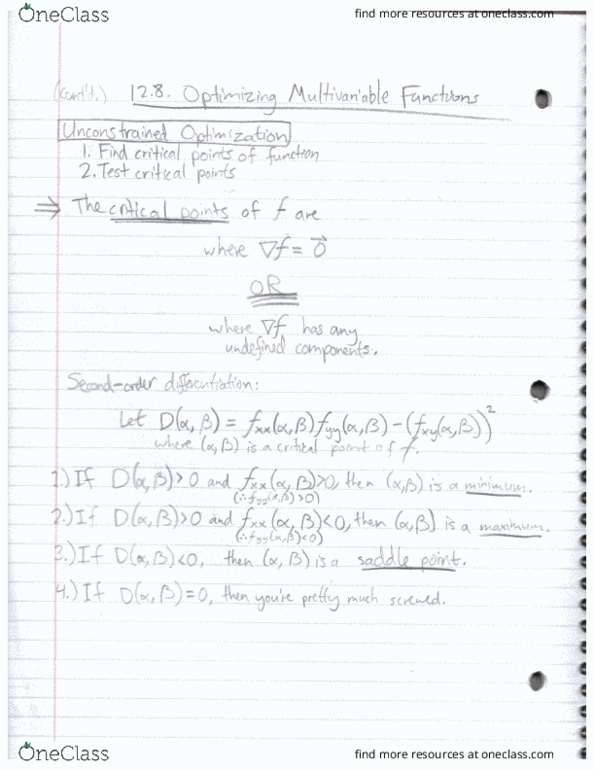 OneClass
find more resources at oneclass.com
(cont'd.) 12.8. Optimizing Multivariable Functions
Unconstrained Optimization
1. Find critical points of function
2. Test critical points
⇒ The critical points of f are
where ∇f = 0⃗
OR
where ∇f has any
undefined components.
Second-order differentiation:
Let D(α, β) = fxx(α, β) fyy(α, β) - (fxy(α, β))²
where (α, β) is a critical point of f.
1.) If D(α, β) > 0 and fxx(α, β) > 0, then (α, β) is a minimum.
(∴ fyy(α, β) > 0)
2.) If D(α, β) > 0 and fxx(α, β) < 0, then (α, β) is a maximum.
(∴ fyy(α, β) < 0)
3.) If D(α, β) < 0, then (α, β) is a saddle point.
4.) If D(α, β) = 0, then you're pretty much screwed.
OneClass
find more resources at oneclass.com